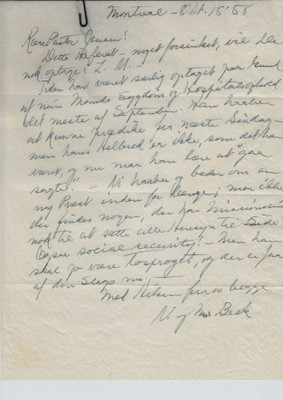 Montreal - Okt. 15' 58
Kære Pastor
Dette Referat - noget forsinket, vil De
nok optage i L. M.
Jiden har været særlig optaget paa Grund
af min Mands Sygdom og Hospitalsophold
det meste af September. Han haaber
at kunne prædike her næste Søndag -
men hans Helbred er ikke, som det har
været, og nu maa han lære at "gaa
sagte". - Vi haaber og beder om en
ny Præst inden for længe; men
der findes nogen, der har Missionssind
nok til at sætte alle Hensyn til Side
social security! - Men han
skal jo være tosproget, og der er faa
af den Slags nu.
Med Hilsen fra os begge
Mrs Beck